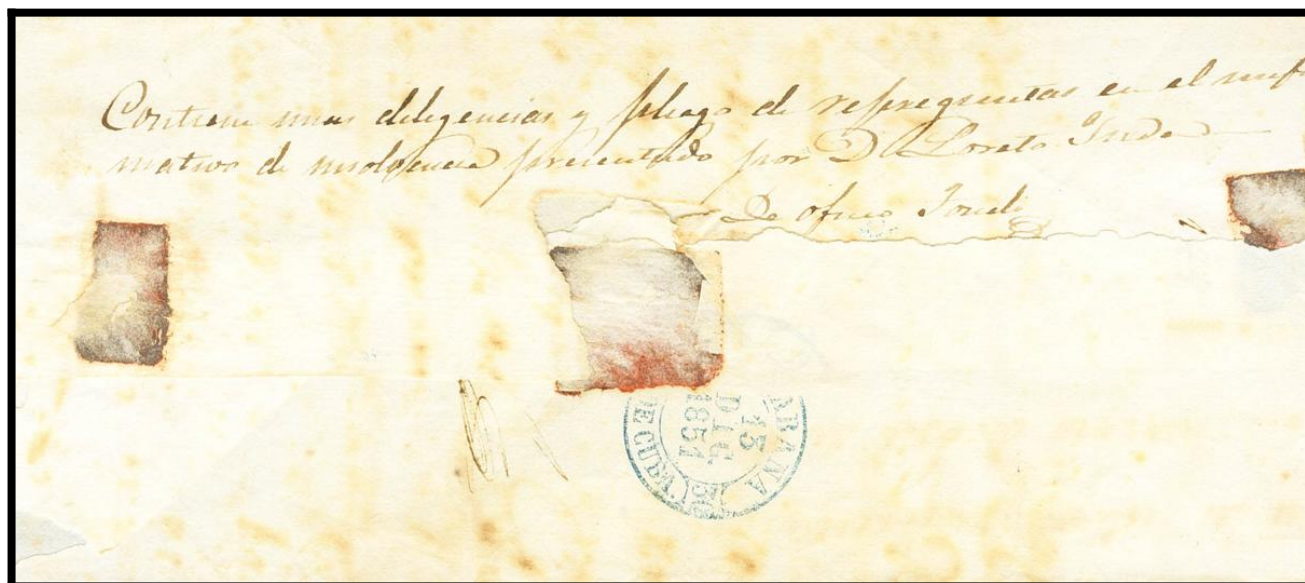 Contiene unas diligencias y pliego de repreguntas en el
mativo de insolvencia presentado por D. Loreto
De oficio
HABANA
13
DIC
1851
DE CUBA